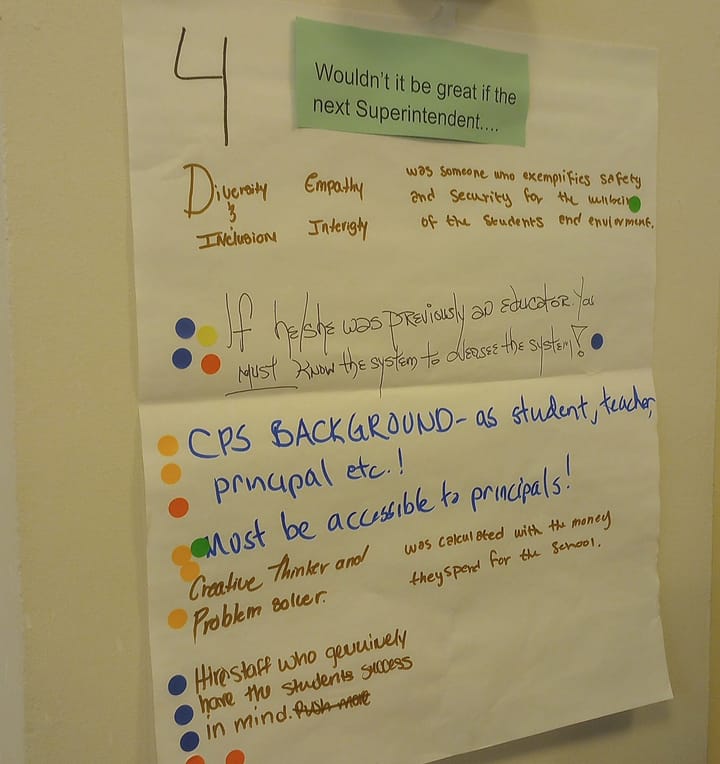 4
Wouldn't it be great if the
next Superintendent....
Diversity
&
Inclusion
Empathy
Interigty
was someone who exemplifies safety
and security for the wllbein
of the students and enviorment.
If he/she was previously an educator. You
must know the system to oversee the system!
CPS BACKGROUND - as student, teacher,
principal etc.!
Must be accessible to principals!
Creative Thinker and
Problem solver.
was calculated with the money
they spend for the school.
Hire staff who genuinely
have the students success
in mind. Push more